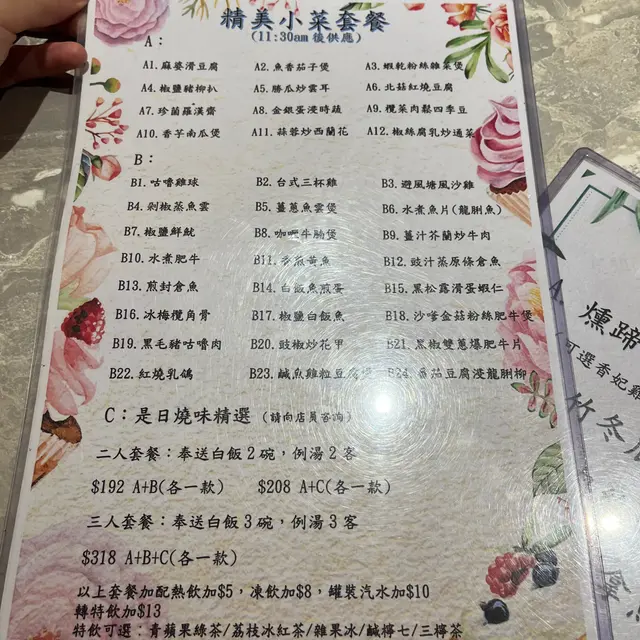 精美小菜套餐
(11:30am 後供應)
A：
A1.麻婆滑豆腐 A2.魚香茄子煲 A3.蝦乾粉絲雜菜煲
A4.椒鹽豬柳扒 A5.勝瓜炒雲耳 A6.北菇紅燒豆腐
A7.珍菌羅漢齋 A8.金銀蛋浸時蔬 A9.欖菜肉鬆四季豆
A10.香芋南瓜煲 A11.蒜蓉炒西蘭花 A12.椒絲腐乳炒通菜
B：
B1.咕嚕雞球 B2.台式三杯雞 B3.避風塘風沙雞
B4.剁椒蒸魚雲 B5.薑蔥魚雲煲 B6.水煮魚片(龍脷魚)
B7.椒鹽鮮魷 B8.咖喱牛腩煲 B9.薑汁芥蘭炒牛肉
B10.水煮肥牛 B11.香煎黃魚 B12.豉汁蒸原條倉魚
B13.煎封倉魚 B14.白飯魚煎蛋 B15.黑松露滑蛋蝦仁
B16.冰梅欖角骨 B17.椒鹽白飯魚 B18.沙嗲金菇粉絲肥牛煲
B19.黑毛豬咕嚕肉 B20.豉椒炒花甲 B21.黑椒雙蔥爆肥牛片
B22.紅燒乳鴿 B23.鹹魚雞粒豆腐煲 B24.番茄豆腐浸龍脷柳
C：是日燒味精選 (請向店員咨詢)
二人套餐：奉送白飯2碗，例湯2客
$192 A+B(各一款) $208 A+C(各一款)
三人套餐：奉送白飯3碗，例湯3客
$318 A+B+C(各一款)
以上套餐加配熱飲加$5，凍飲加$8，罐裝汽水加$10
轉特飲加$13
特飲可選：青蘋果綠茶/荔枝冰紅茶/雜果冰/鹹檸七/三檸茶
A.
燻蹄
可選香妃雞
竹冬瓜